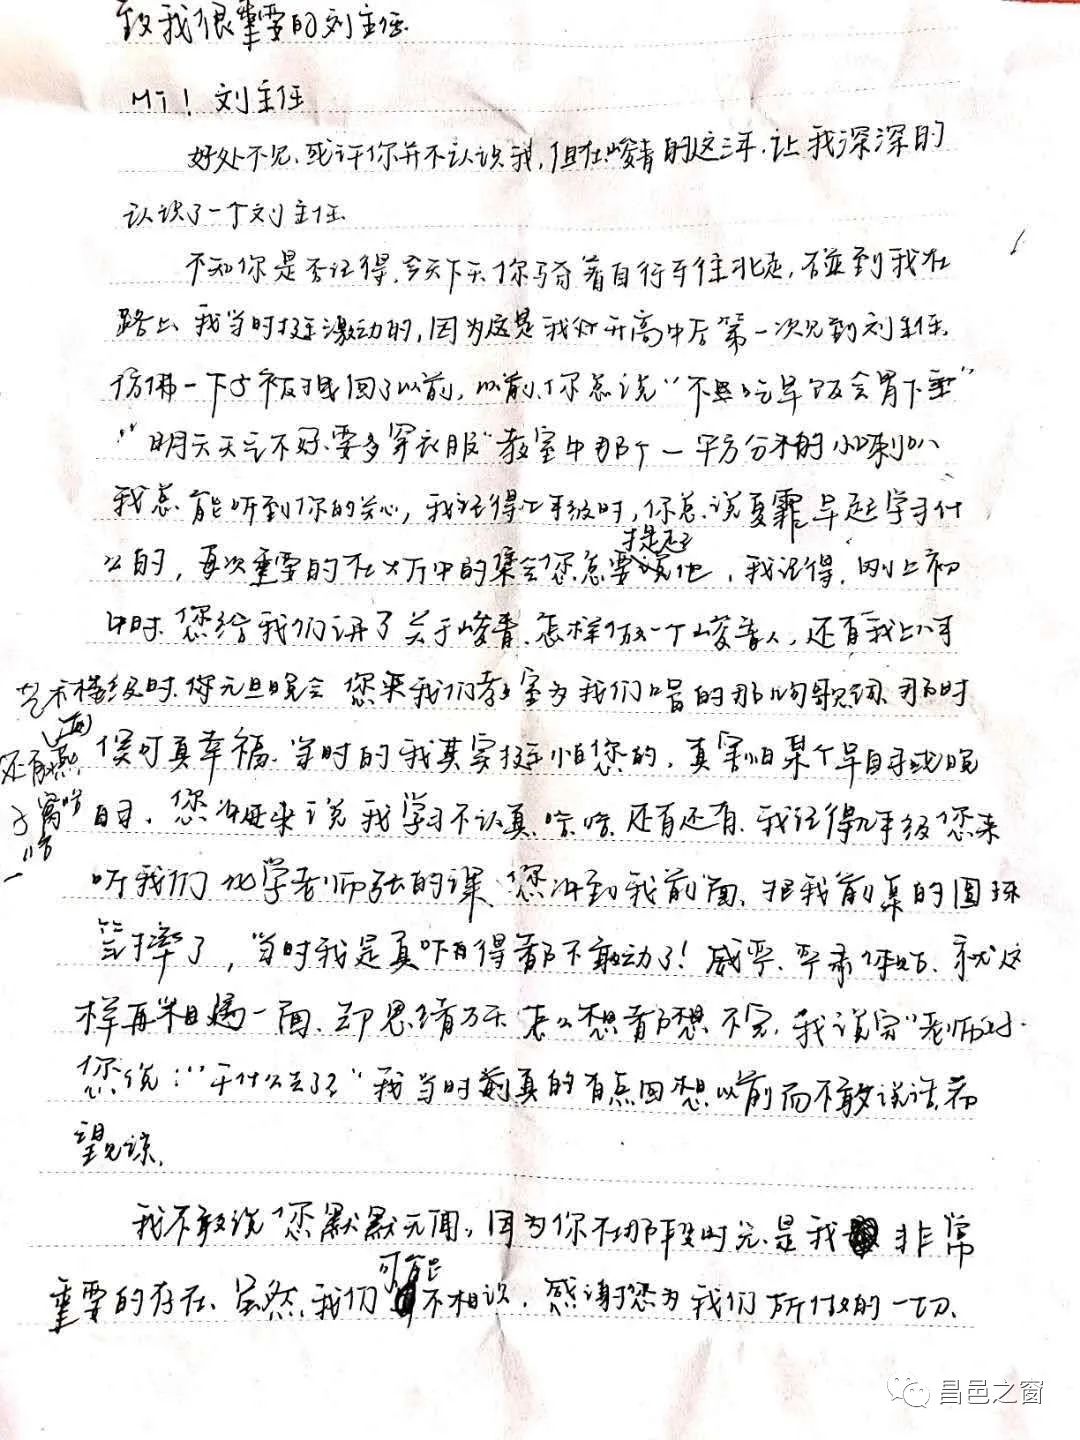 致我很重要的刘主任
Hi！刘主任
好处不见，或许你并不认识我，但在峻青的这三年，让我深深的
认识了一个刘主任
不知你是否记得，今天下天你骑着自行车往北走，碰到我在
路上，我当时挺激动的，因为这是我分开高中后第一次见到刘主任
仿佛一下子被拽回了以前，以前，你总说“不吃早饭会胃下垂”
“明天天气不好，要多穿衣服”教室中那个一平方分米的小喇叭
我总能听到你的关心，我记得七年级时，你总说夏霏早起学习什
么的，再次重要的在大厅中的集会您总要提起他，我记得，刚上初
中时，您给我们讲了关于峻青，怎样做一个峻青人，还有我上八年
级时，你元旦晚会 您来我们教室为我们唱的那句歌词，那时
艺术楼
还有燕
子窝哈
哈
候可真幸福，当时的我其实挺怕您的，真害怕某个早自习或晚
自习，您冲进来说我学习不认真，哈哈，还有还有，我记得九年级您来
听我们化学老师张的课，您冲到我前面，把我前桌的圆珠
笔摔了，当时我是真吓得都不敢动了！威严、严肃
就这
样再相遇一面，却思绪万千，怎么想都想不完，我说完“老师好”
您说：“干什么去了”我当时真的有点回想以前而不敢说话，希
望见谅，
我不敢说您默默无闻，因为你在那段时光，是我非常
重要的存在，虽然，我们可能不相识，感谢您为我们所做的一切、
昌邑之窗